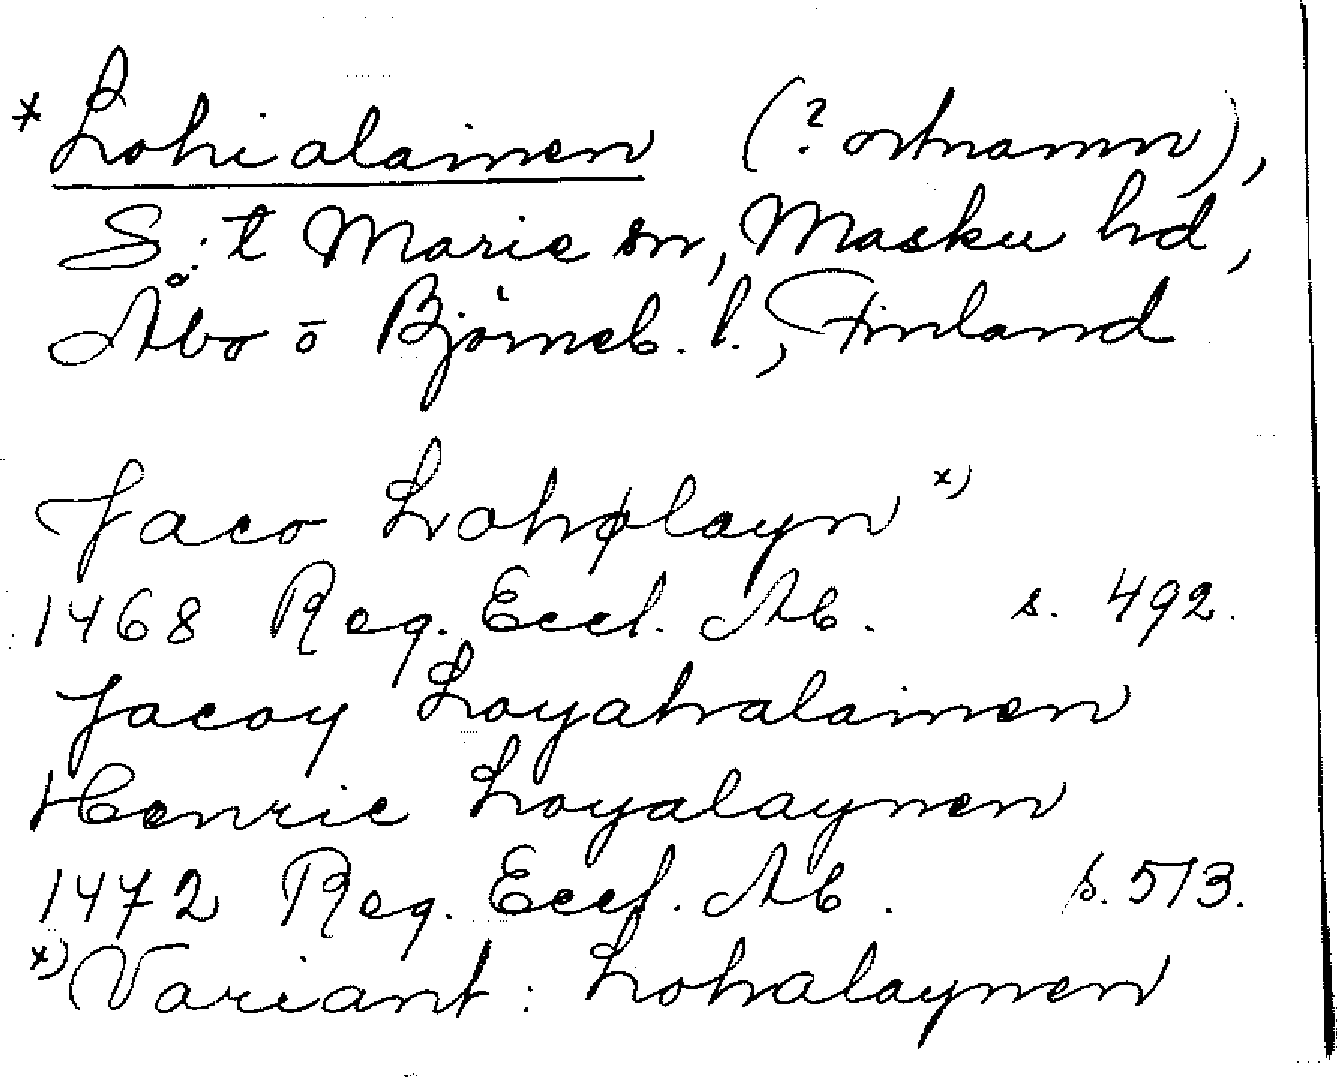 * Lohialainen (? ortnamn),
S:t Marie sn, Masku hd,
Åbo o Björneb. l., Finland
Jaco Lohølayn x)
1468 Reg. Eccl. Ab. s. 492.
Jacoy Loyahalainen
Henric Loyalaynen
1472 Reg. Eccl. Ab. s. 513.
x) Variant: Lohalaynen